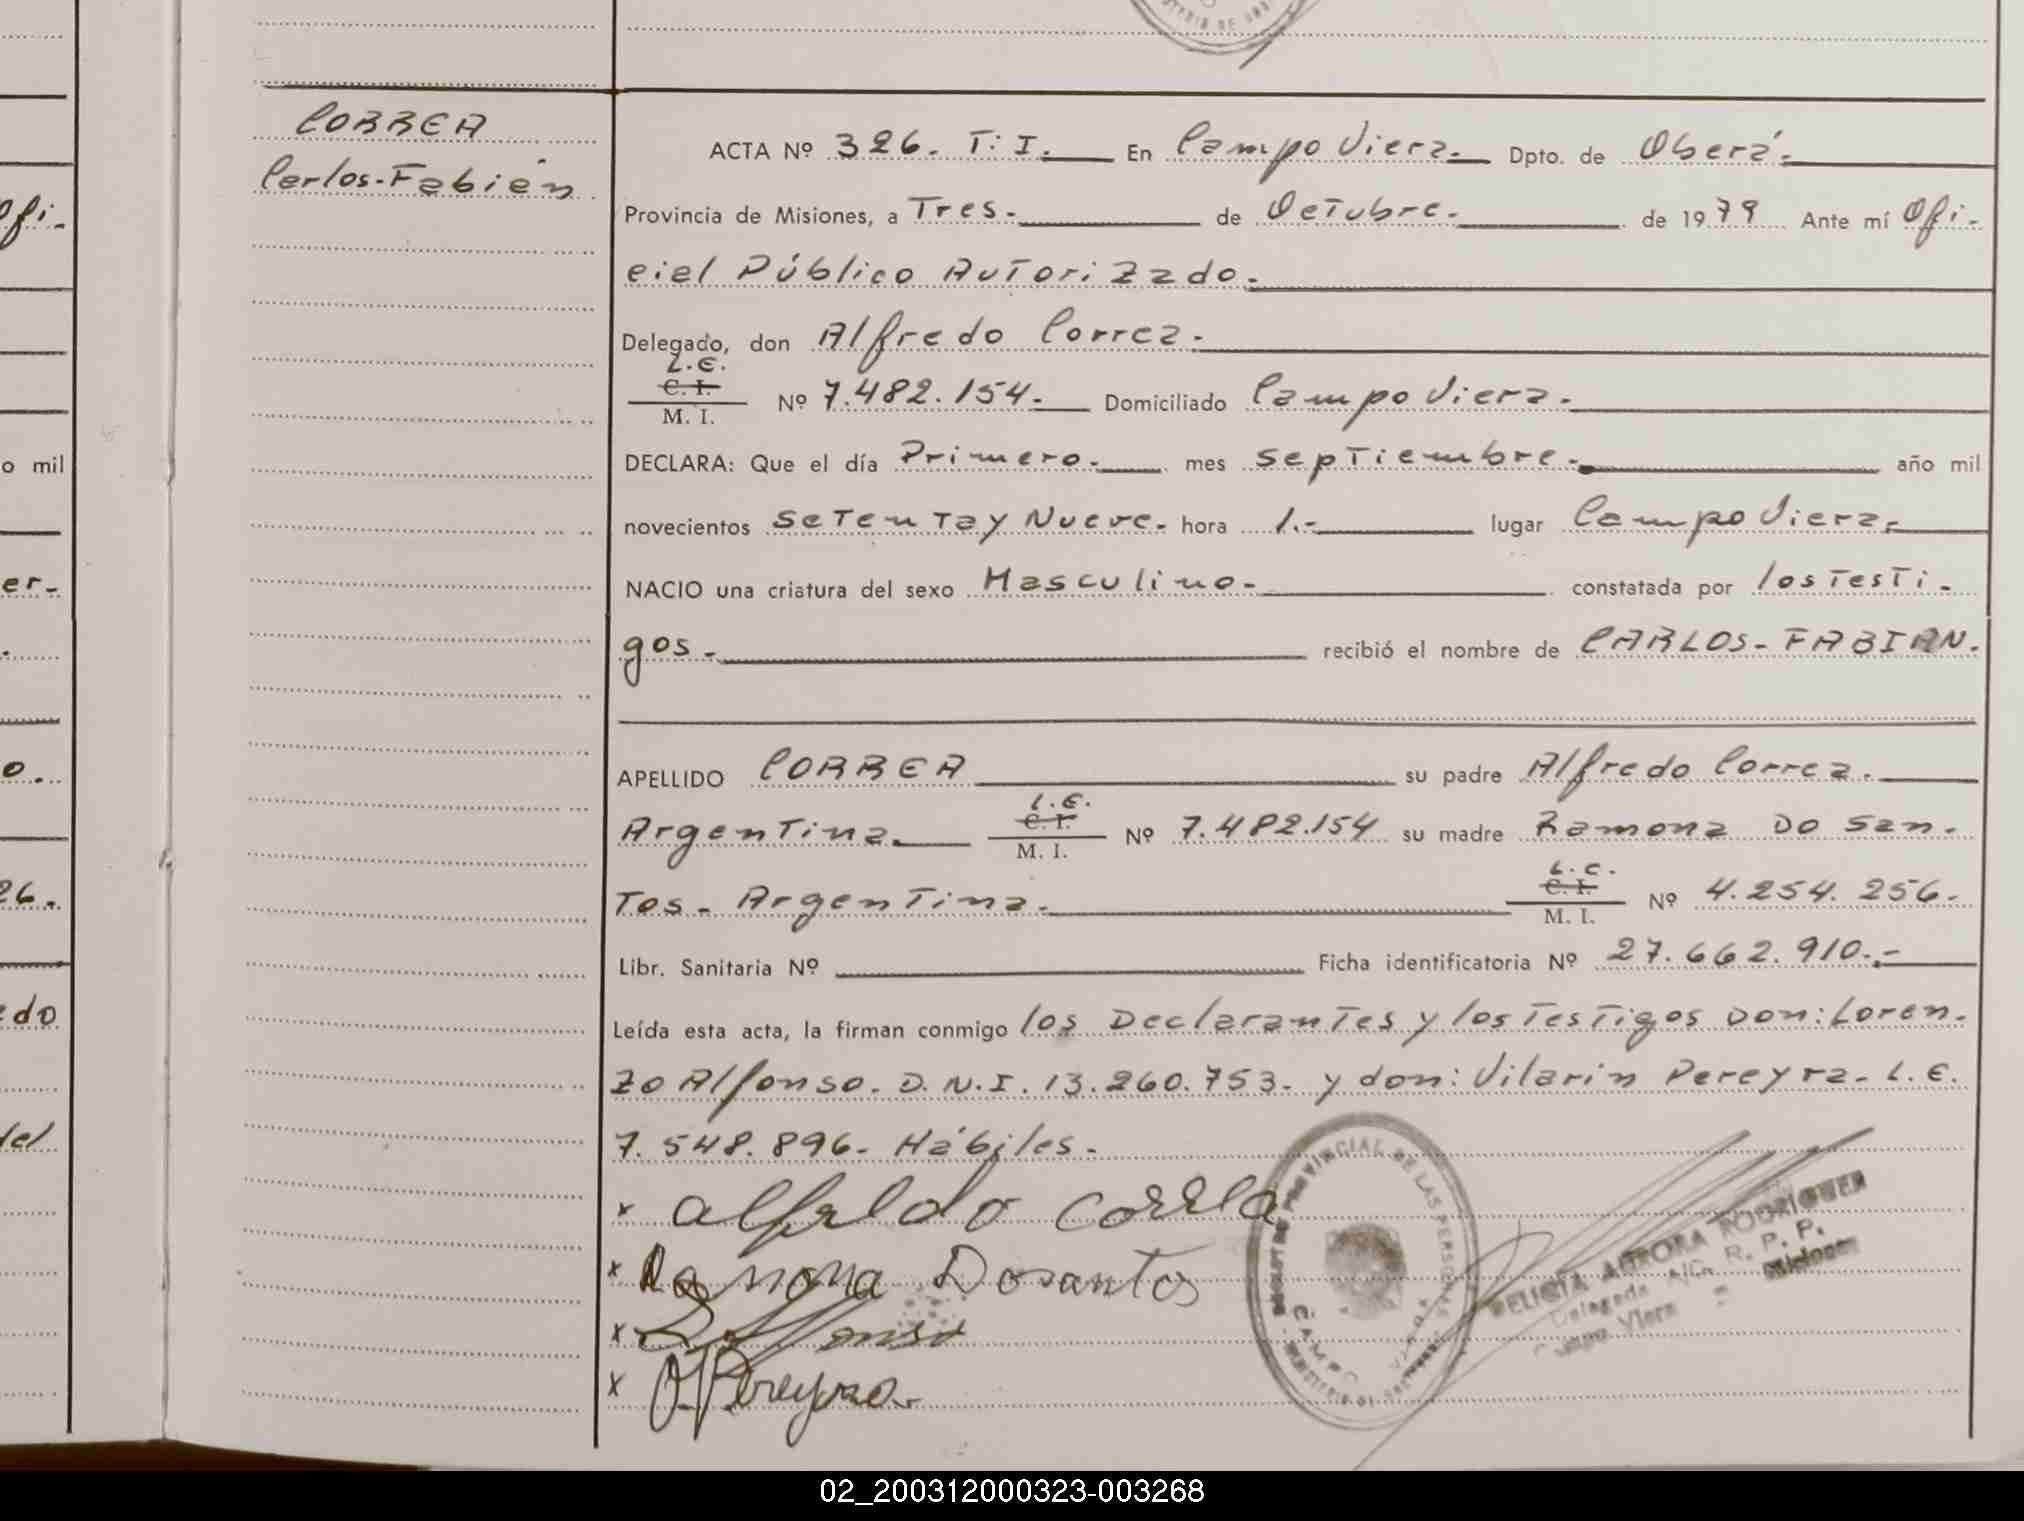 CORREA
Carlos-Fabián
ACTA Nº 326. T: I. En Campo Viera. Dpto. de Oberá.
Provincia de Misiones, a Tres. de Octubre. de 1979 Ante mí Ofi-
cial Público Autorizado.
Delegado, don Alfredo Correa.
L.E.
C. I.
M. I. Nº 7.482.154. Domiciliado Campo Viera.
DECLARA: Que el día Primero. mes septiembre. año mil
novecientos setenta y Nueve. hora 1.- lugar Campo Viera.
NACIO una criatura del sexo Masculino. constatada por los Testi-
gos. recibió el nombre de CARLOS-FABIAN.
APELLIDO CORREA su padre Alfredo Correa.
Argentina. L.E. C. I. M. I. Nº 7.482.154 su madre Ramona Do San-
Tos. Argentina. L.C. C. I. M. I. Nº 4.254.256.
Libr. Sanitaria Nº Ficha identificatoria Nº 27.662.910.-
Leída esta acta, la firman conmigo los Declarantes y los Testigos Don: Loren-
zo Alfonso. D.N.I. 13.260.753. y don: Vilarin Pereyra. L.E.
7.548.896. Hábiles.
x alfredo correa
x Ramona Dosantos
x Alfonso
x Pereyra
PROVINCIAL DE LAS PERSONAS
CAMPO VIERA
FELICIA AURORA RODRIGUEZ
Delegada A/C. R. P. P.
Campo Viera Misiones
o mil
Ofi-
er-
o.
26.
edo
del
02_200312000323-003268